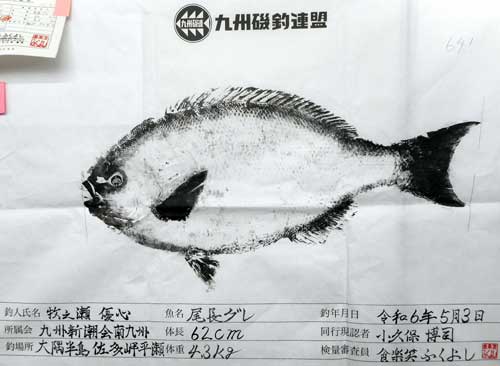 九州磯釣連盟
釣人氏名 牧之瀬 優心 魚名 尾長グレ 釣年月日 令和6年5月3日
所属会 九州新潮会南九州 体長 62cm 同行現認者 小久保 博司
釣場所 大隅半島 佐多岬平瀬 体重 4.3kg 検量審査員 食楽笑ふくよし